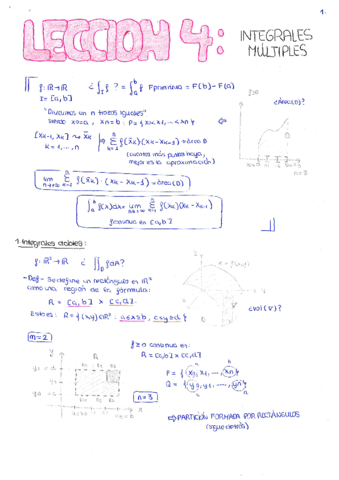 1.
LECCION 4:
INTEGRALES
MÚLTIPLES
f: ℝ→ℝ ¿∫_I f ? = ∫_a^b f Fprimitiva = F(b) - F(a)
I = [a,b]
f≥0
¿Área(D)?
"Dividimos en n trozos iguales"
siendo x0=a, xn=b, P={x0<x1,...<xn}
[xk-1, xk] → x̃k
k=1,...,n
Σ_{k=1}^n f(x̃k)(xk-xk-1) ≈ área D
(cuantas más partes haya,
mejor es la aproximación)
lim_{n→∞} Σ_{k=1}^n f(x̃k)·(xk-xk-1) = área(D)
∫_a^b f(x)dx = lim_{n→∞} Σ_{k=1}^n f(x̃k)(xk-xk-1)
f continua en [a,b]
1. Integrales dobles:
f: ℝ²→ℝ ¿ ∬_D f dA?
-Def- Se define un rectángulo en ℝ²
como una región de la fórmula:
R = [a,b] × [c,d].
Esto es: R = {(x,y)∈ℝ²: a≤x≤b, c≤y≤d}
¿Vol(V)?
m=2
n=3
R
f≥0 continua en:
R = [a,b] × [c,d]
P = {x0, x1, ..., xn}
Q = {y0, y1, ..., yn}
PARTICIÓN FORMADA POR RECTÁNGULOS